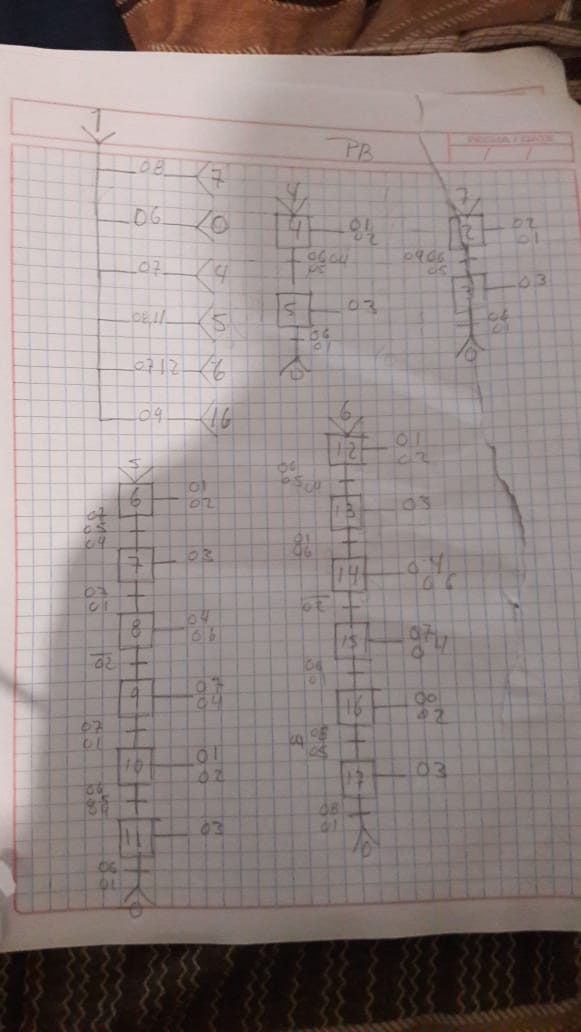 1
PB
FECHA / DATE
08 7
06 0
07 4
0811 5
0712 6
09 16
4
4 01
02
0604
05
5 03
06
01
0
7
2 02
01
0906
05
3 03
06
01
0
5
6 01
02
07
05
04
7 03
07
01
8 04
06
02
9 07
04
07
01
10 01
02
06
11 03
06
01
0
6
12 01
02
06
0504
13 03
01
06
14 04
06
02
15 07
04
06
01
16 00
02
08
05
17 03
08
01
0